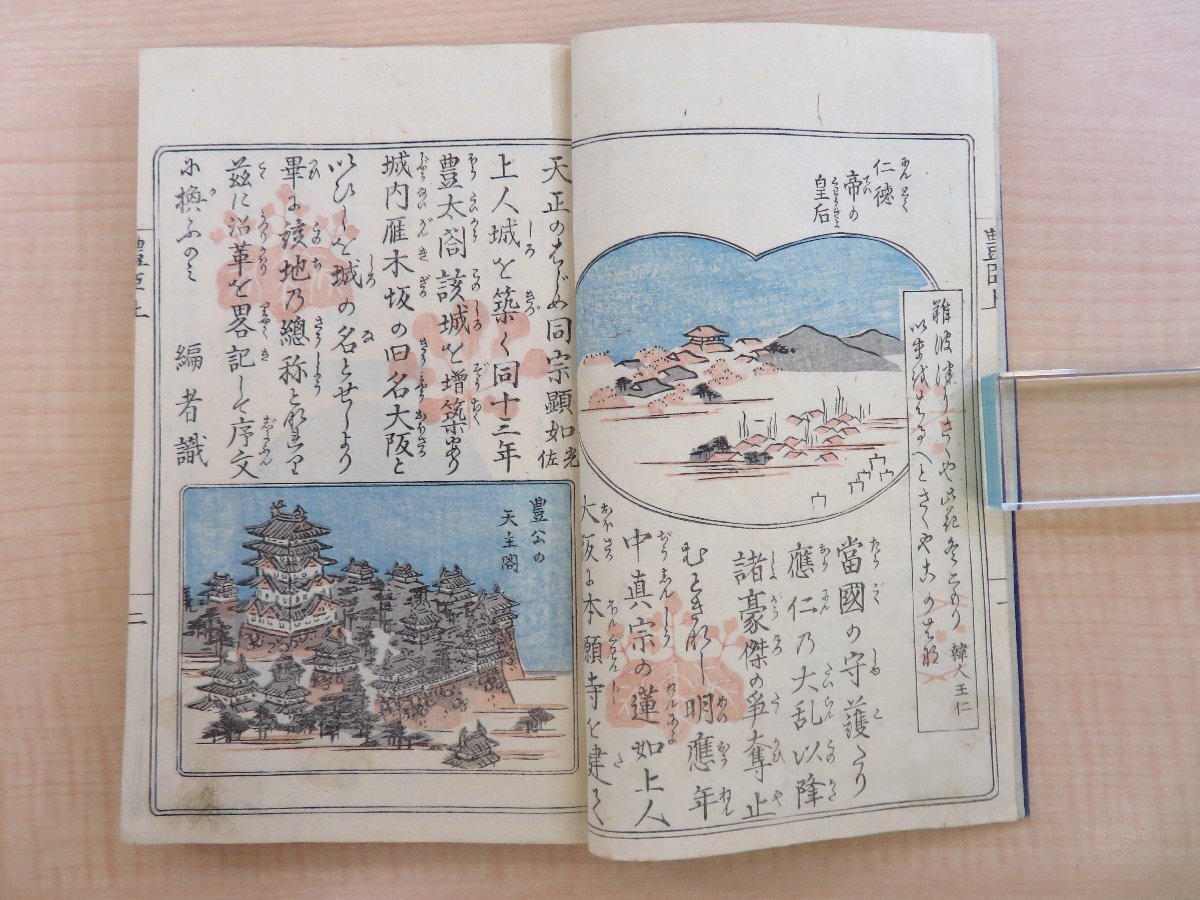 仁徳
帝の
皇后
難波津にさくや此花冬こもり
いま越はるへとさくやこのはな
韓人王仁
當國の守護たり
應仁乃大乱以降
諸豪傑の爭奪止
むときなし明應年
中真宗の蓮如上人
大阪に本願寺を建て
天正のはじめ同宗顕如光佐
上人城を築く同十二年
豊太閤該城を増築あり
城内雁木坂の旧名大阪と
いひしを城の名とせしより
畢に該地乃總称と
茲に沿革を畧記して序文
に換ふのミ
編者識
豊公の
天主閣
豊臣上
一
豊臣上
二